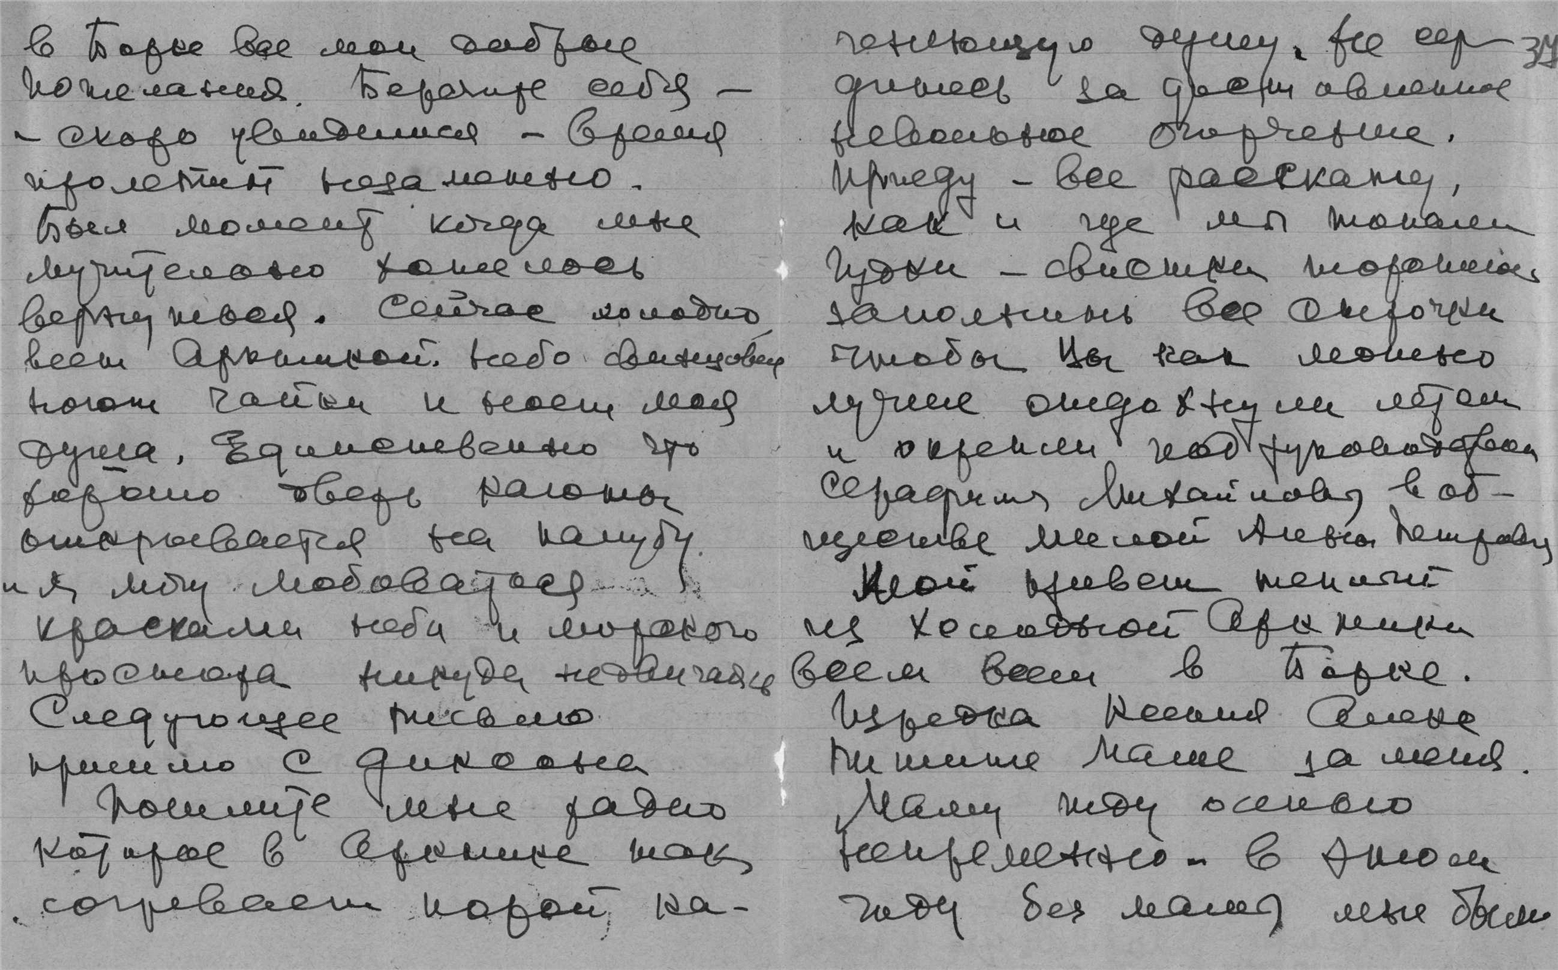 в Борке все мои добрые
пожелания. Берегите себя –
– скоро увидимся – время
пролетит незаметно.
Был момент когда мне
мучительно хотелось
вернуться. Сейчас холодно
веет Арктикой. Небо свинцовое
ноют чайки и ноет моя
душа. Единственно что
хорошо дверь каюты
открывается на палубу
и я могу любоваться
красками неба и морского
простора никуда не отлучаясь
Следующее письмо
пришлю с Диксона
Пошлите мне радио
которое в Арктике так
согревает порой ка-
ченеющую душу. Не сер-
дитесь за доставленное
невольное огорчение.
Приеду – все расскажу,
как и где мы топали
Гудки – свистки тороплюсь
заполнить все строчки
Чтобы Вы как можно
лучше отдохнули летом
и окрепли под руководством
Серафимы Михайловны в об-
ществе милой Анны Петровны
Мой привет теплый
из холодной Арктики
всем всем в Борке.
Изредка Ксения Алекс
пишите Маме за меня.
Маму жду осенью
непременно – в этом
году без мамы мне было